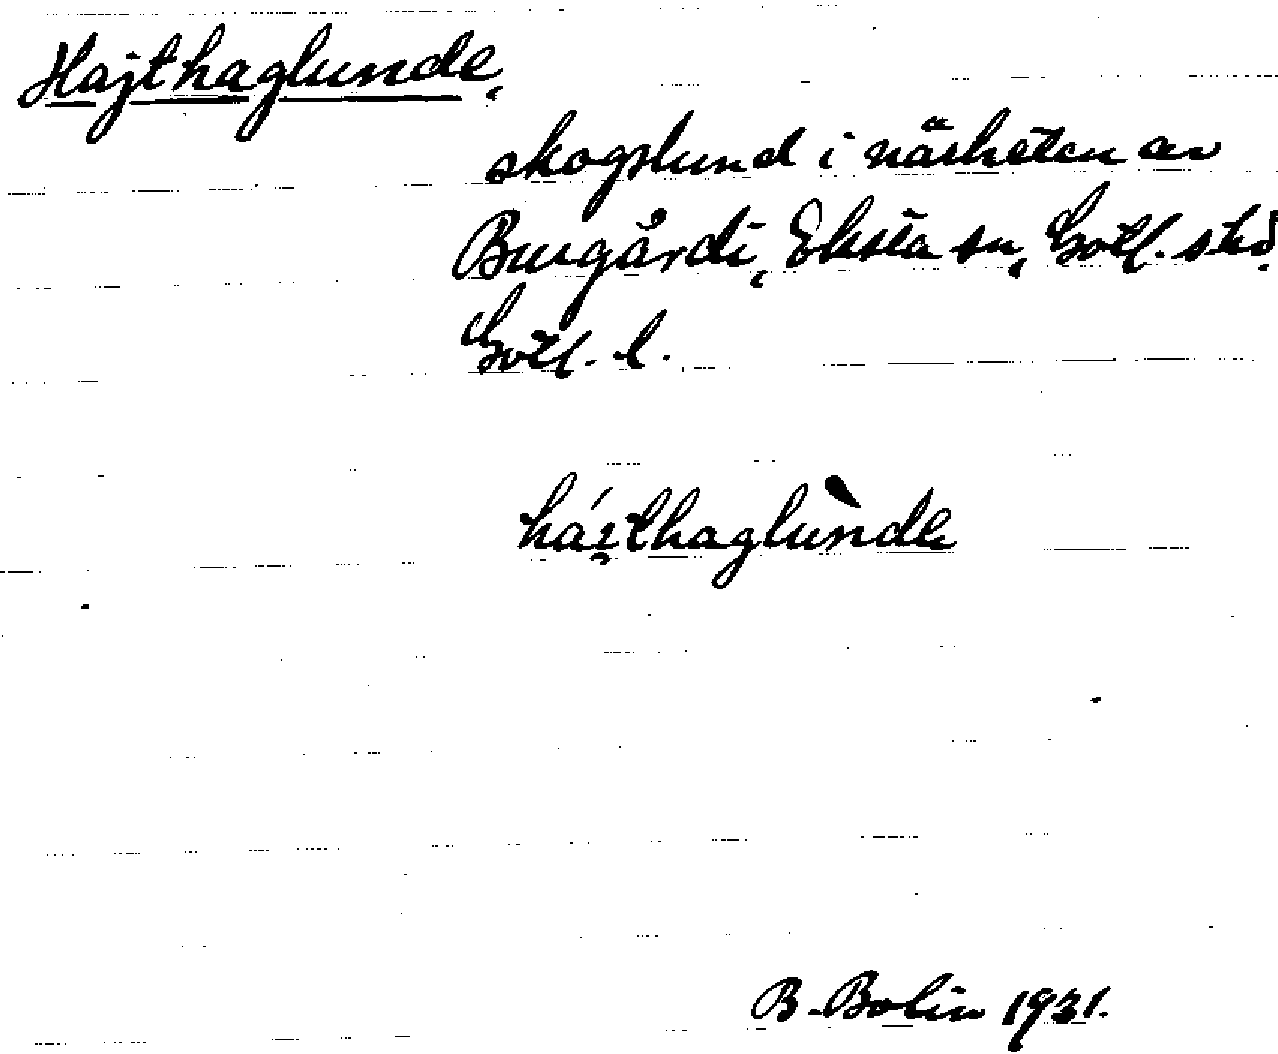 Hajthaglunde,
skogslund i närheten av
Burgårdi, Eksta sn, Gotl. s. hd.
Gotl. l.
hái̯thaglùnde
B. Bolin 1931.